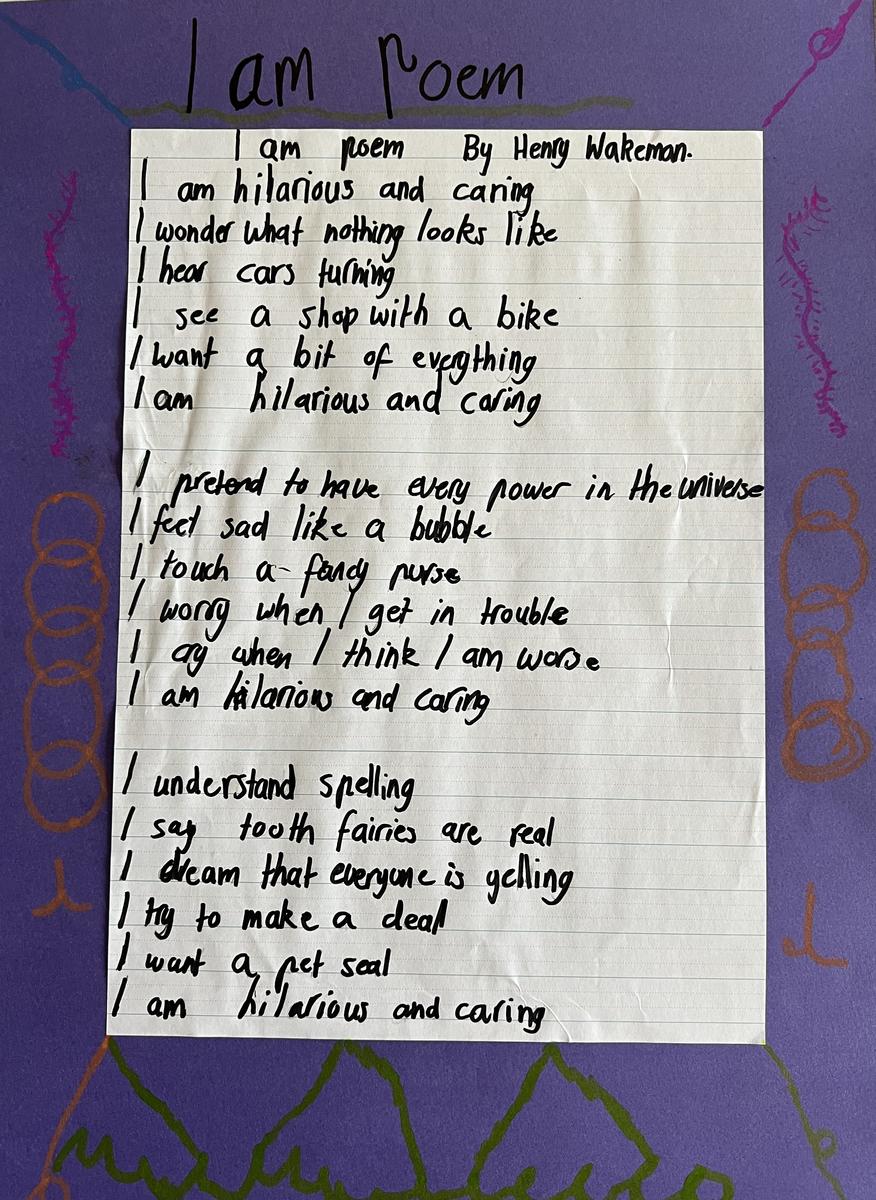 I am Poem
I am poem By Henry Wakeman.
I am hilarious and caring
I wonder what nothing looks like
I hear cars turning
I see a shop with a bike
I want a bit of everything
I am hilarious and caring
I pretend to have every power in the universe
I feel sad like a bubble
I touch a fancy purse
I worry when I get in trouble
I cry when I think I am worse
I am hilarious and caring
I understand spelling
I say tooth fairies are real
I dream that everyone is yelling
I try to make a deal
I want a pet seal
I am hilarious and caring